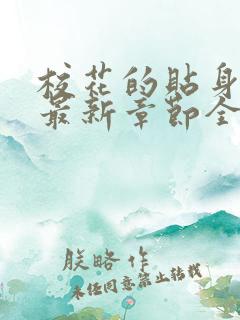 校花的貼身
最新章節全
朕略作
未经同意禁止转载